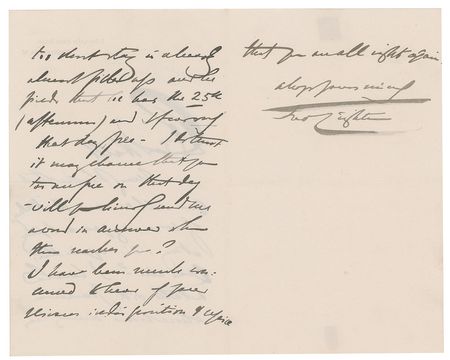 too short stay is already
almost filled up and he
finds that he has the 25th
(afternoon) and
that day free - I trust
it may chance that you
too are free on that day
- will you kindly send me
a word in answer when
this reaches you?
I have been much con-
cerned to hear of your
serious indisposition & rejoice
that you are all right again
always yours sincerely